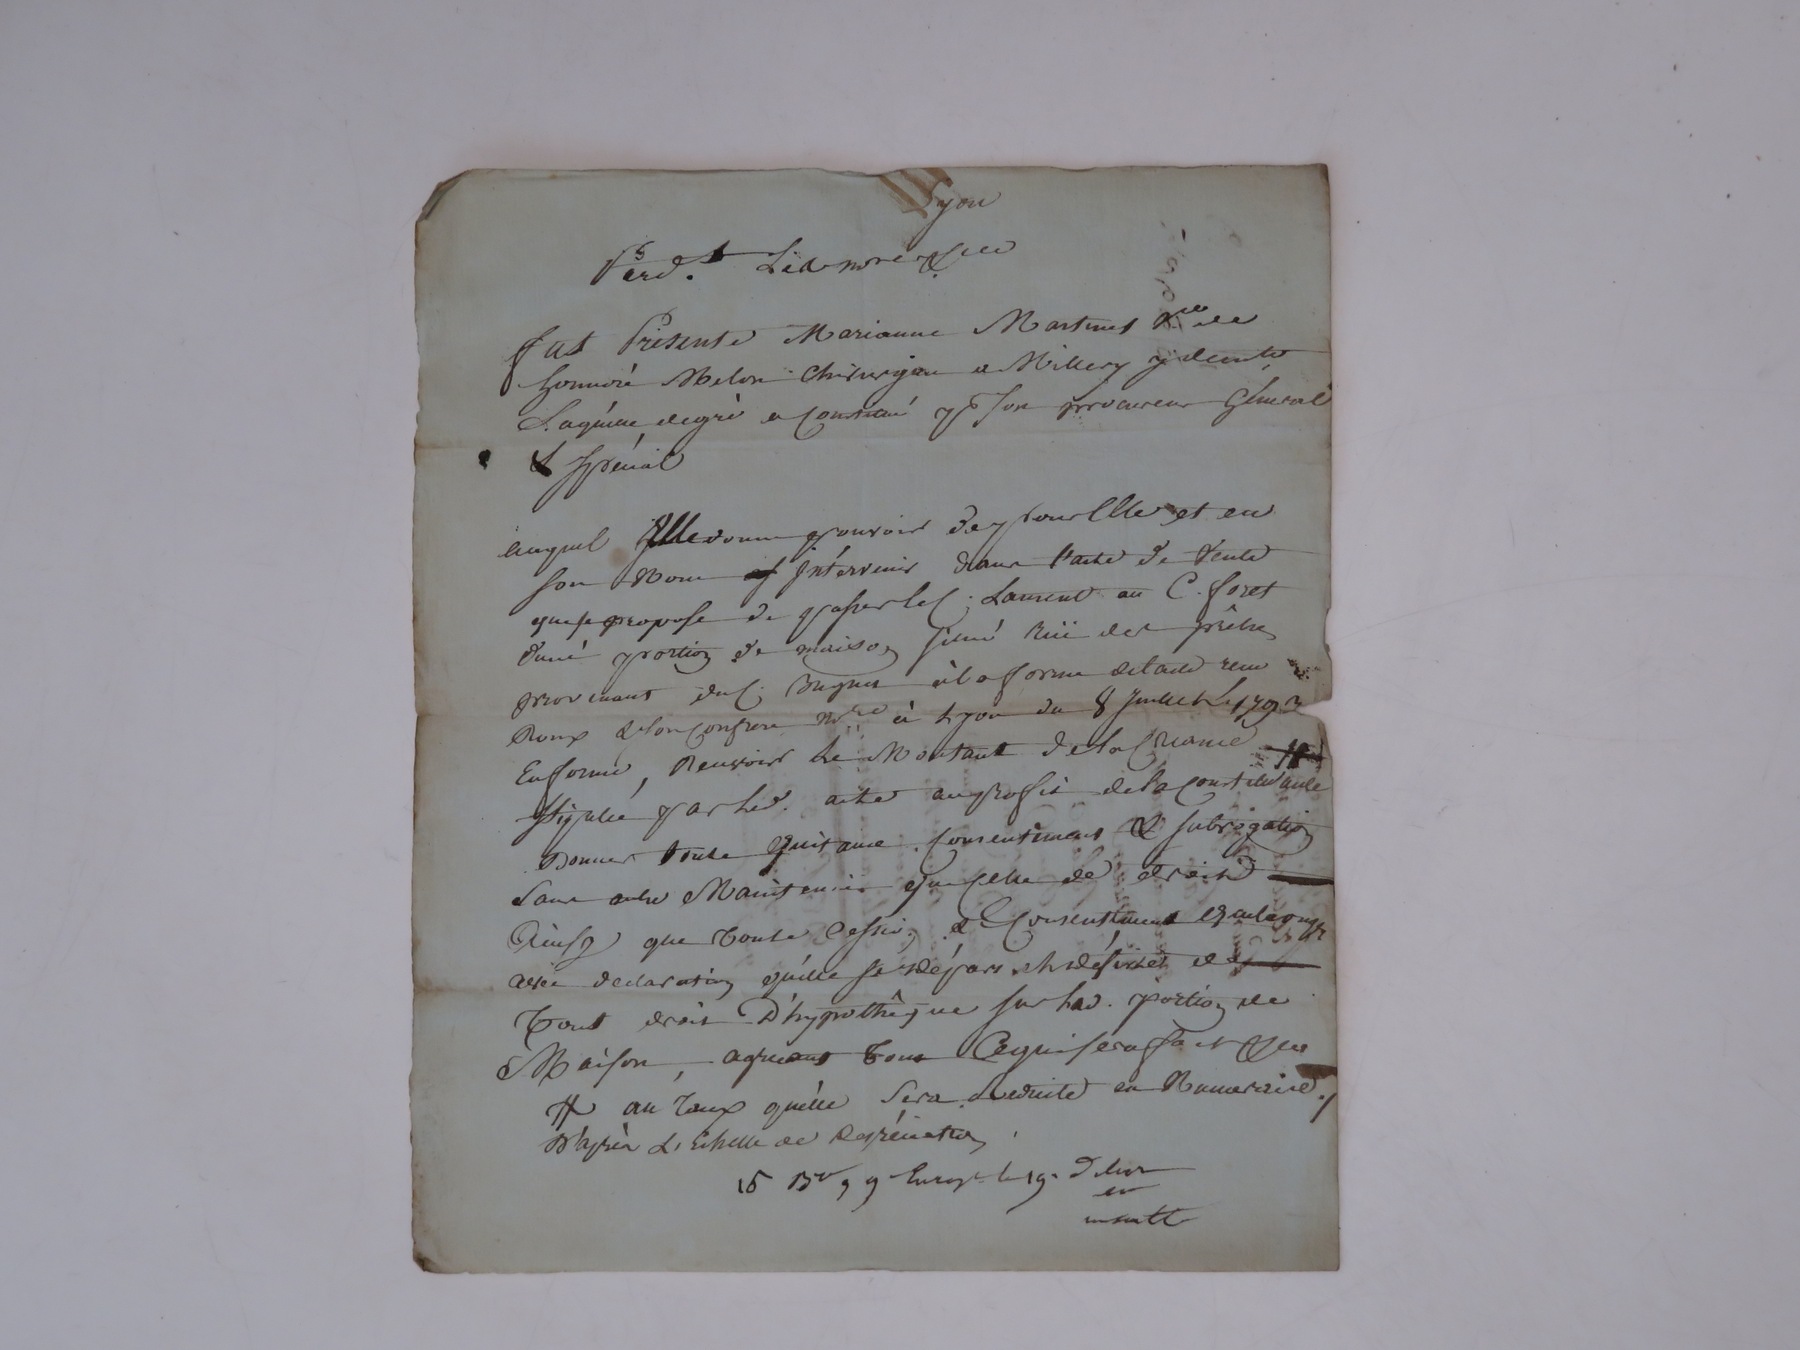 Lyon
Fut Présente Marianne Martinet Vve de
honnoré Melon Chirurgien a Millery y demte
Laquelle de gré a Constitué pr Son procureur Général
& Spécial
Auquel Elle donne pouvoir de pour Elle et en
Son Nom Intervenir dans l'acte de Vente
que se propose de passer le C. Laurent au C. foret
d'une portion de maison située Rüe des prêtres
provenant du C. à la forme de l'acte reçu
Roux & Son Confrere Nores à Lyon du 8 Juillet 1793
En forme, Recevoir Le Montant de la Créance #
Stipulée par led. acte au profit de la Constituante
Donner toute Quitance Consentement & Subrogation
Sans autre Maintenüe que celle de droit
Ainsy que toute Cession & Consentement
avec déclaration qu'elle se départ et désiste de
tout droit D'hypothêque sur lad. portion de
Maison, agréant tout Ce qui sera fait
# au taux qu'elle Sera Reduite en Numeraire
D'après L'Echelle de Depréciation